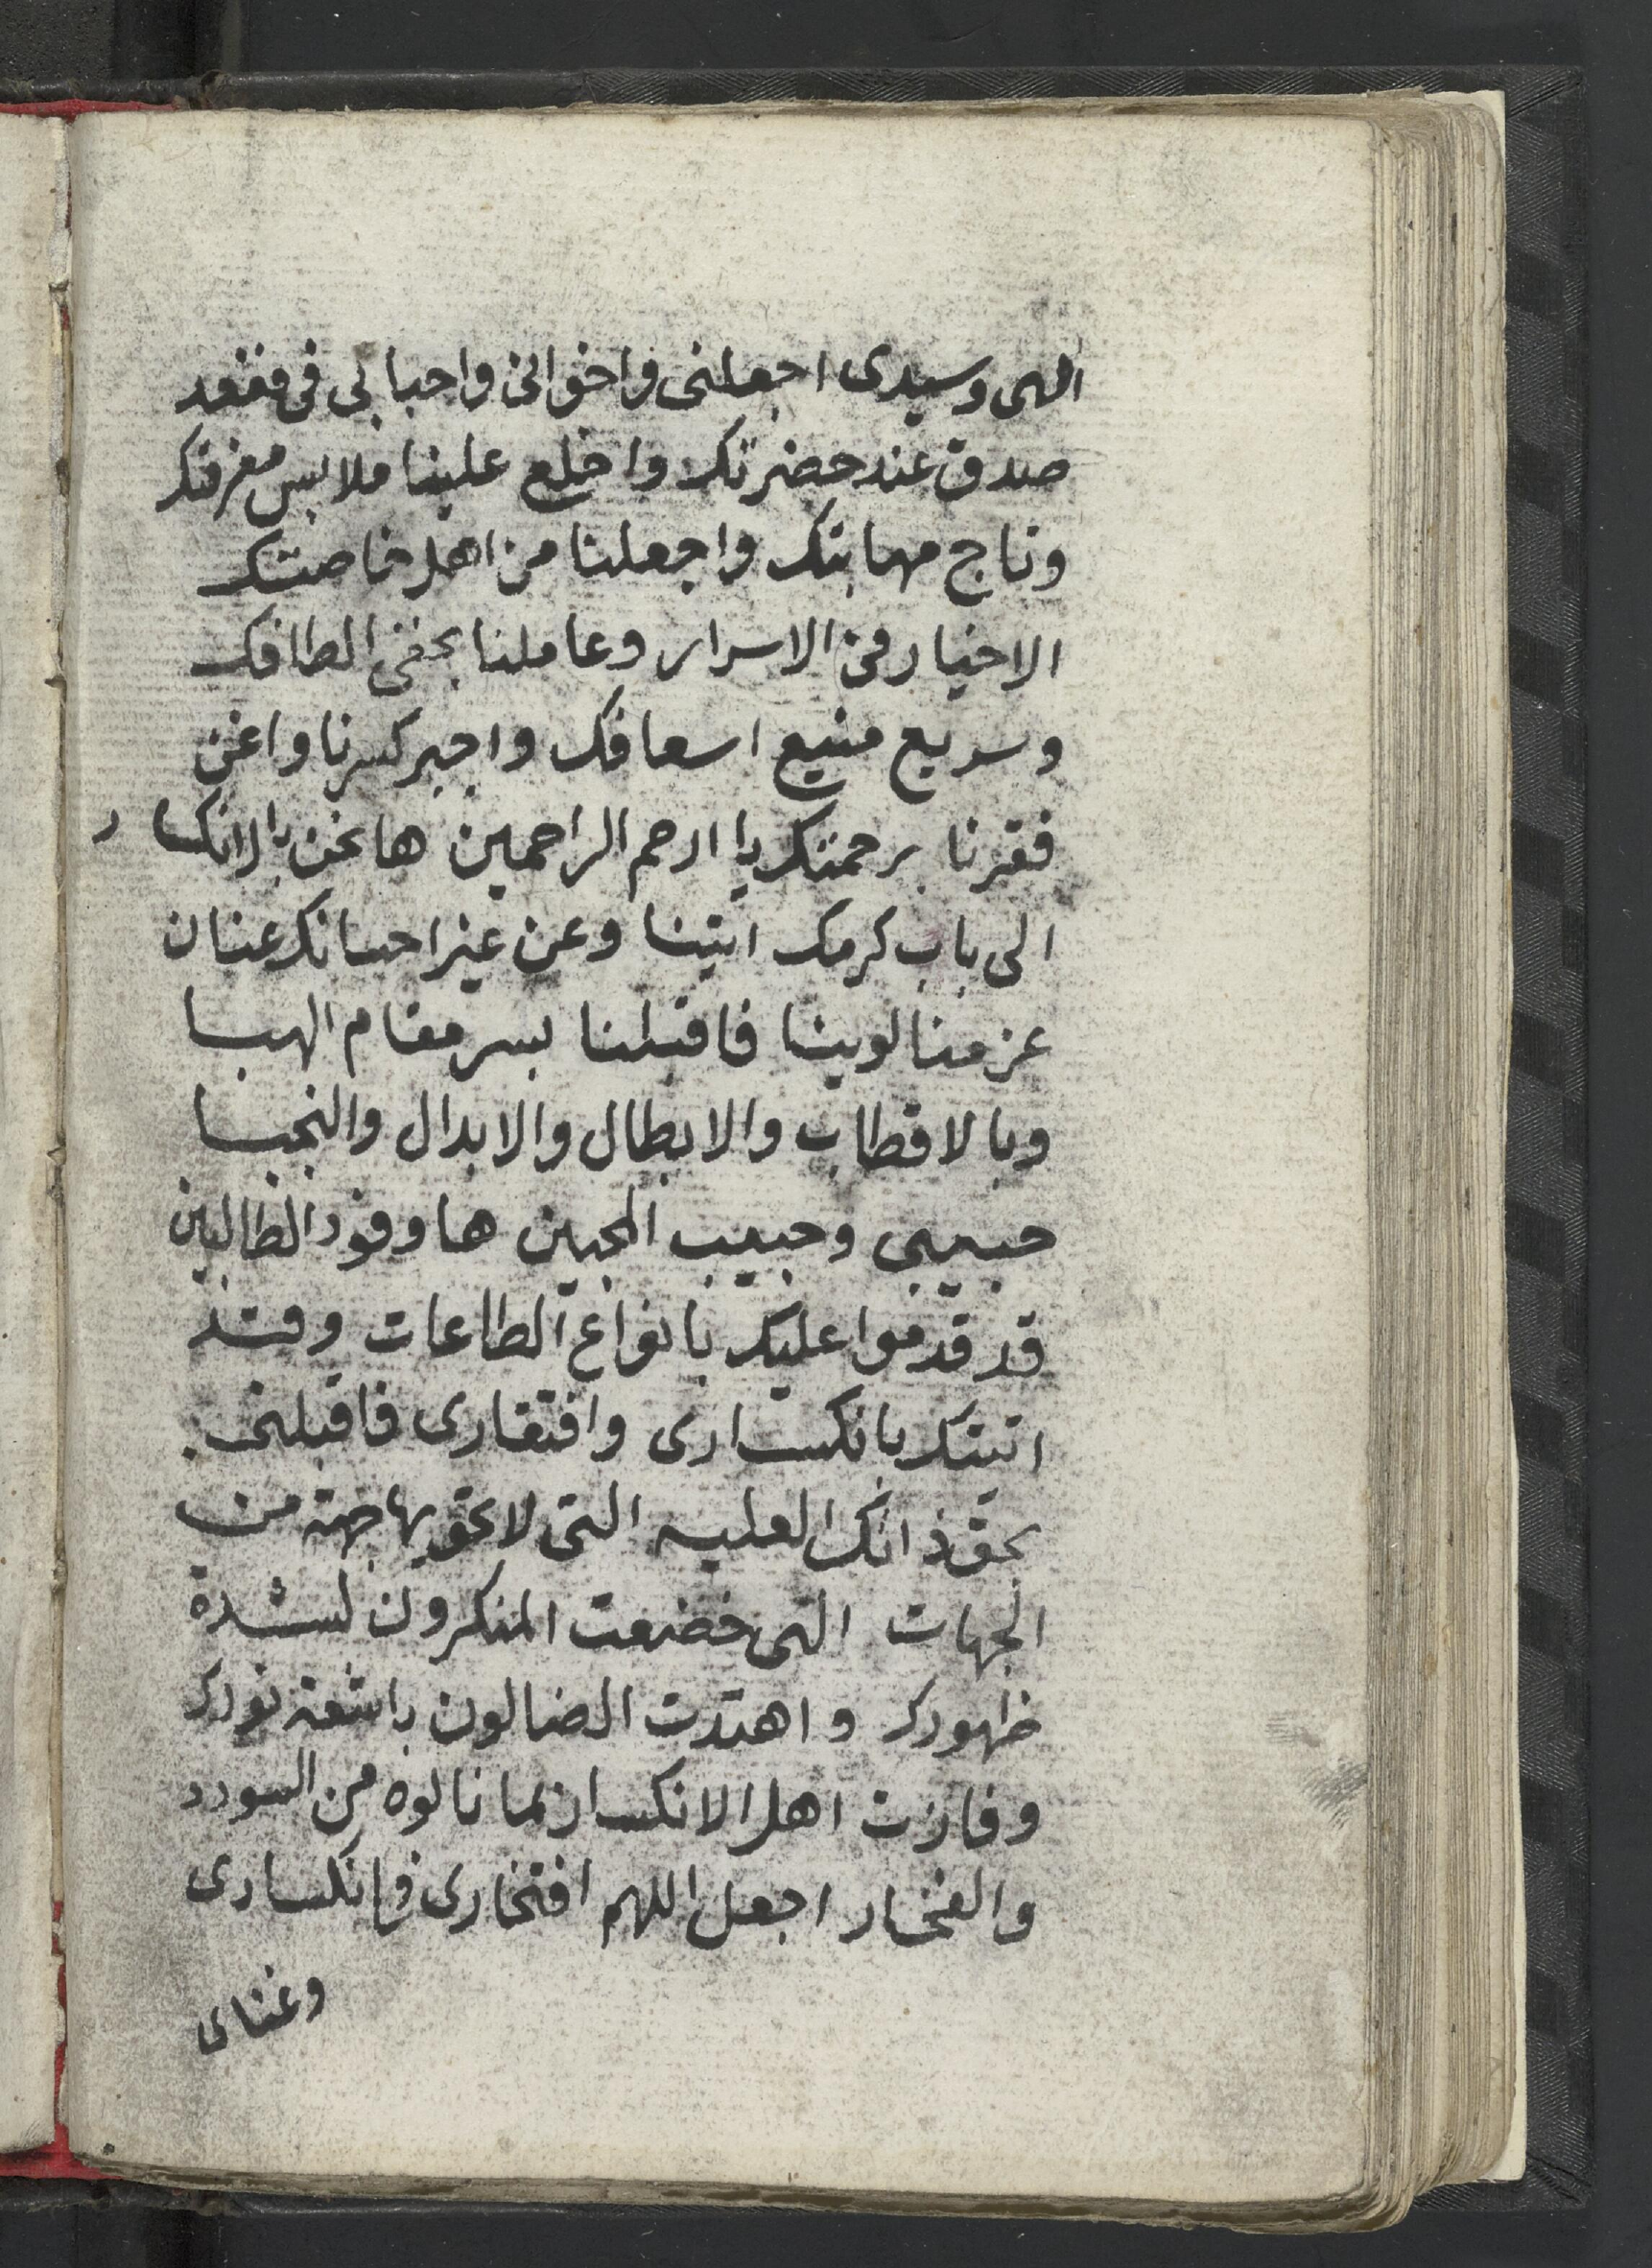 الهى وسيدى اجعلنى واخوانى واحبابى فى مقعد
صدق عند حضرتك واخلع علينا ملابس معرفتك
وتاج مهابتك واجعلنا من اهل خاصتك
الاخيار فى الاسرار وعاملنا بخفى الطافك
وسريع منيع اسعافك واجبر كسرنا واغن
فقرنا برحمتك يا ارحم الراحمين ها نحن بالانكسار
الى باب كرمك اتينا وعن غير احسانك عنان
عزمنا لوينا فاقبلنا بسر مقام الهبا
وبالاقطاب والابطال والابدال والنجبا
حبيبى وحبيب المحبين ها وفود الطالبين
قد قدموا عليك بانواع الطاعات وقد
اتيتك بانكسارى وافتقارى فاقبلنى
بحق ذاتك العليه التى لا تحويها جهة من
الجهات التى خضعت المنكرون لشدة
ظهورك واهتدت الضالون باشعة نورك
وفازت اهل الانكسار بما نالوه من السودد
والفخار اجعل اللهم افتخارى فى انكسارى
وغناى